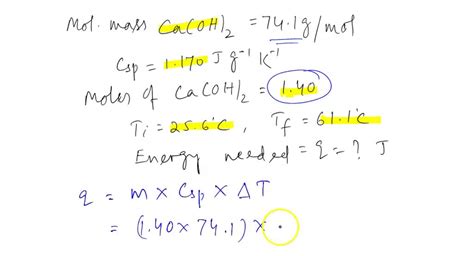 Mol. mass Ca(OH)₂ = 74.1g/mol
Csp = 1.170 J g⁻¹ K⁻¹
Moles of Ca(OH)₂ = 1.40
Ti = 25.6°C, Tf = 61.1°C
Energy needed = q = ? J
q = m × Csp × ΔT
= (1.40 × 74.1) ×